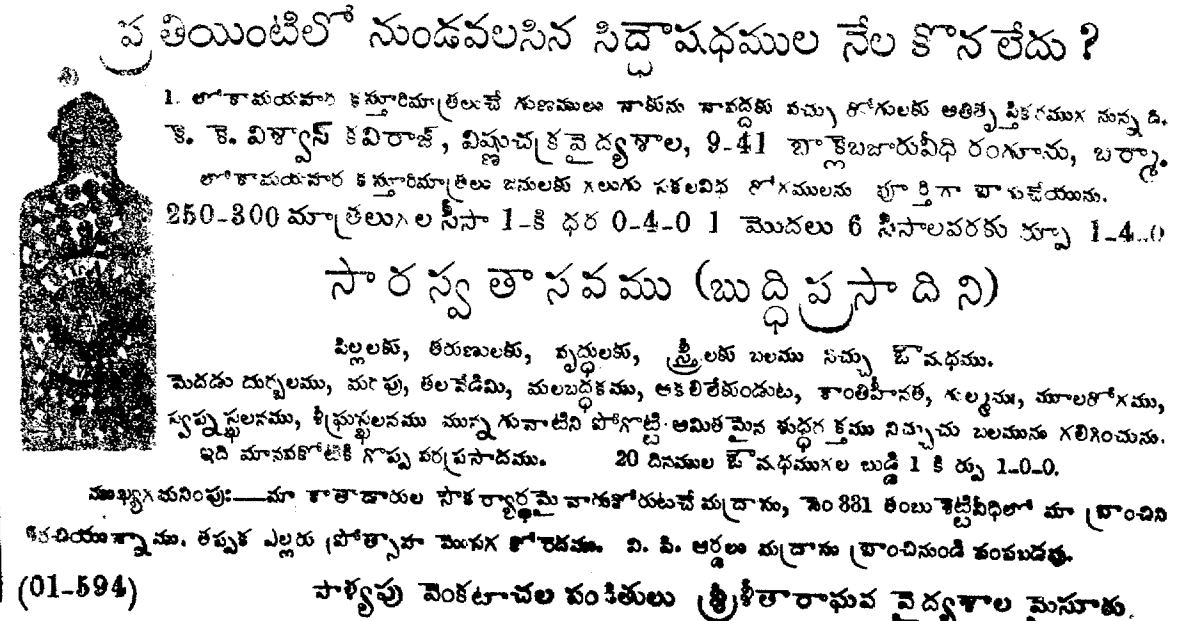 ప్రతియింటిలో నుండవలసిన సిద్ధౌషధముల నేల కొన లేదు ?
1. లోకామయహారి కస్తూరిమాత్రలుచే గుణములు నాకును నావద్దకు వచ్చు రోగులకు అతితృప్తికరముగ నున్నది.
కె. కె. విశ్వాస్ కవిరాజ్, విష్ణుచక్ర వైద్యశాల, 9-41 బాక్లెబజారువీధి రంగూను, బర్మా.
లోకామయహారి కస్తూరిమాత్రలు జనులకు గలుగు సకలవిధ రోగములను పూర్తిగా బాగుచేయును.
250-300 మాత్రలుగల సీసా 1-కి ధర 0-4-0 1 మొదలు 6 సీసాలవరకు రూపా 1-4-0
సారస్వతాసవము (బుద్ధిప్రసాదిని)
పిల్లలకు, తరుణులకు, వృద్ధులకు, స్త్రీలకు బలము నిచ్చు ఔషధము.
మెదడు దుర్బలము, మరపు, తలవేడిమి, మలబద్ధకము, ఆకలిలేకుండుట, కాంతిహీనత, గుల్మము, మూలరోగము,
స్వప్నస్ఖలనము, శీఘ్రస్ఖలనము మున్నగువాటిని పోగొట్టి అమితమైన శుద్ధరక్తము నిచ్చుచు బలమును గలిగించును.
ఇది మానవకోటికి గొప్ప వరప్రసాదము. 20 దినముల ఔషధముగల బుడ్డి 1 కి రూపు 1-0-0.
ముఖ్యగమనింపుః—మా ఖాతాదారుల సౌకర్యార్థమై వారుకోరుటచే మద్రాసు, నెం 331 తంబుశెట్టివీధిలో మా బ్రాంచిని
తెరచియున్నాము. తప్పక ఎల్లరు ప్రోత్సాహ మొసగ కోరెదము. వి. పి. ఆర్డర్లు మద్రాసు బ్రాంచినుండి పంపబడవు.
(01-594) వెంకటాచల పండితులు శ్రీ శీతారాఘవ వైద్యశాల మైసూరు.